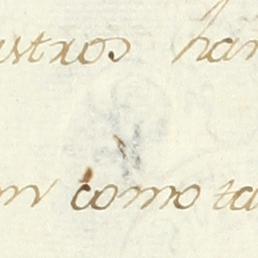 ustros han
m como ta